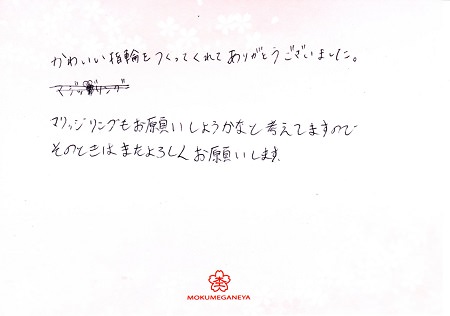 かわいい指輪をつくってくれてありがとうございました。
マリッジリングもお願いしようかなと考えてますので
そのときはまたよろしくお願いします。
MOKUMEGANEYA